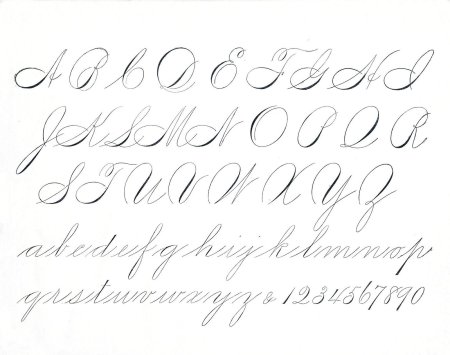 A B C D E F G H I
J K L M N O P Q R
S T U V W X Y Z
a b c d e f g h i j k l m n o p
q r s t u v w x y z & 1 2 3 4 5 6 7 8 9 0